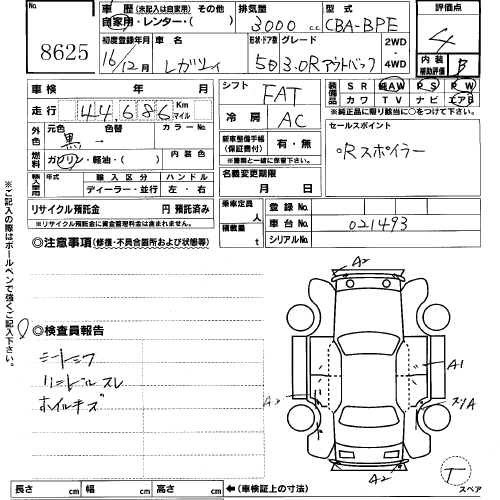 No.
8625
車歴 (未記入は自家用) その他
自家用・レンター・( )
排気量
3000 cc
型式
CBA-BPE
評価点
4
初度登録年月
16/12月
車名
レガツィ
形状・ドア数 グレード
5D 3.0R アウトバック
2WD・4WD
内装補助評価
B
車検 年 月
走行
44,686
Km
マイル
外色
元色 色替
黒 →
カラーNo.
燃料
ガソリン・軽油・( )
内装色
輸入車用
年式
輸入区分
ハンドル
ディーラー・並行
左・右
リサイクル預託金 円 預託済み
※リサイクル預託金に資金管理料金は含まれません。
シフト
FAT
冷房
AC
新車整備手帳
(保証書付)
有・無
※書類と一緒に保管下さい。
名義変更期限
月 日
乗車定員 人
積載量 t
装備品
SR AW PS PW
カワ TV ナビ エアB
※純正品に限り該当に○をつけて下さい。
セールスポイント
°Rスポイラー
登録No.
車台No.
021493
シリアルNo.
◎注意事項 (修復・不具合箇所および状態等)
◎検査員報告
シートシワ
ハンドルスレ
ホイルキズ
※ご記入の際はボールペンで強くご記入下さい。
A2
A1
A2
スリA
A2
T
スペア
長さ cm 幅 cm 高さ cm ←(車検証上の寸法)